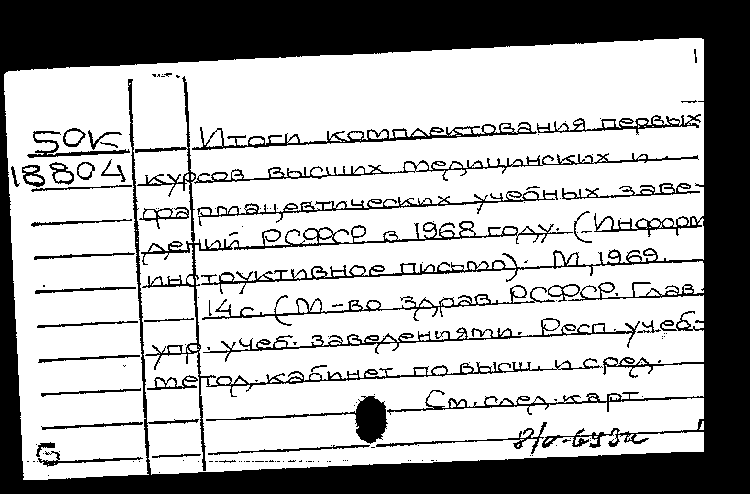 50К Итоги комплектования первых
18804 курсов высших медицинских и
фармацевтических учебных заве-
дений РСФСР в 1968 году. (Информ
инструктивное письмо). М, 1969.
14 с. (М-во здрав. РСФСР. Глав.
упр. учеб. заведениями. Респ. учеб.-
метод. кабинет по высш. и сред.
См. след. карт
Б